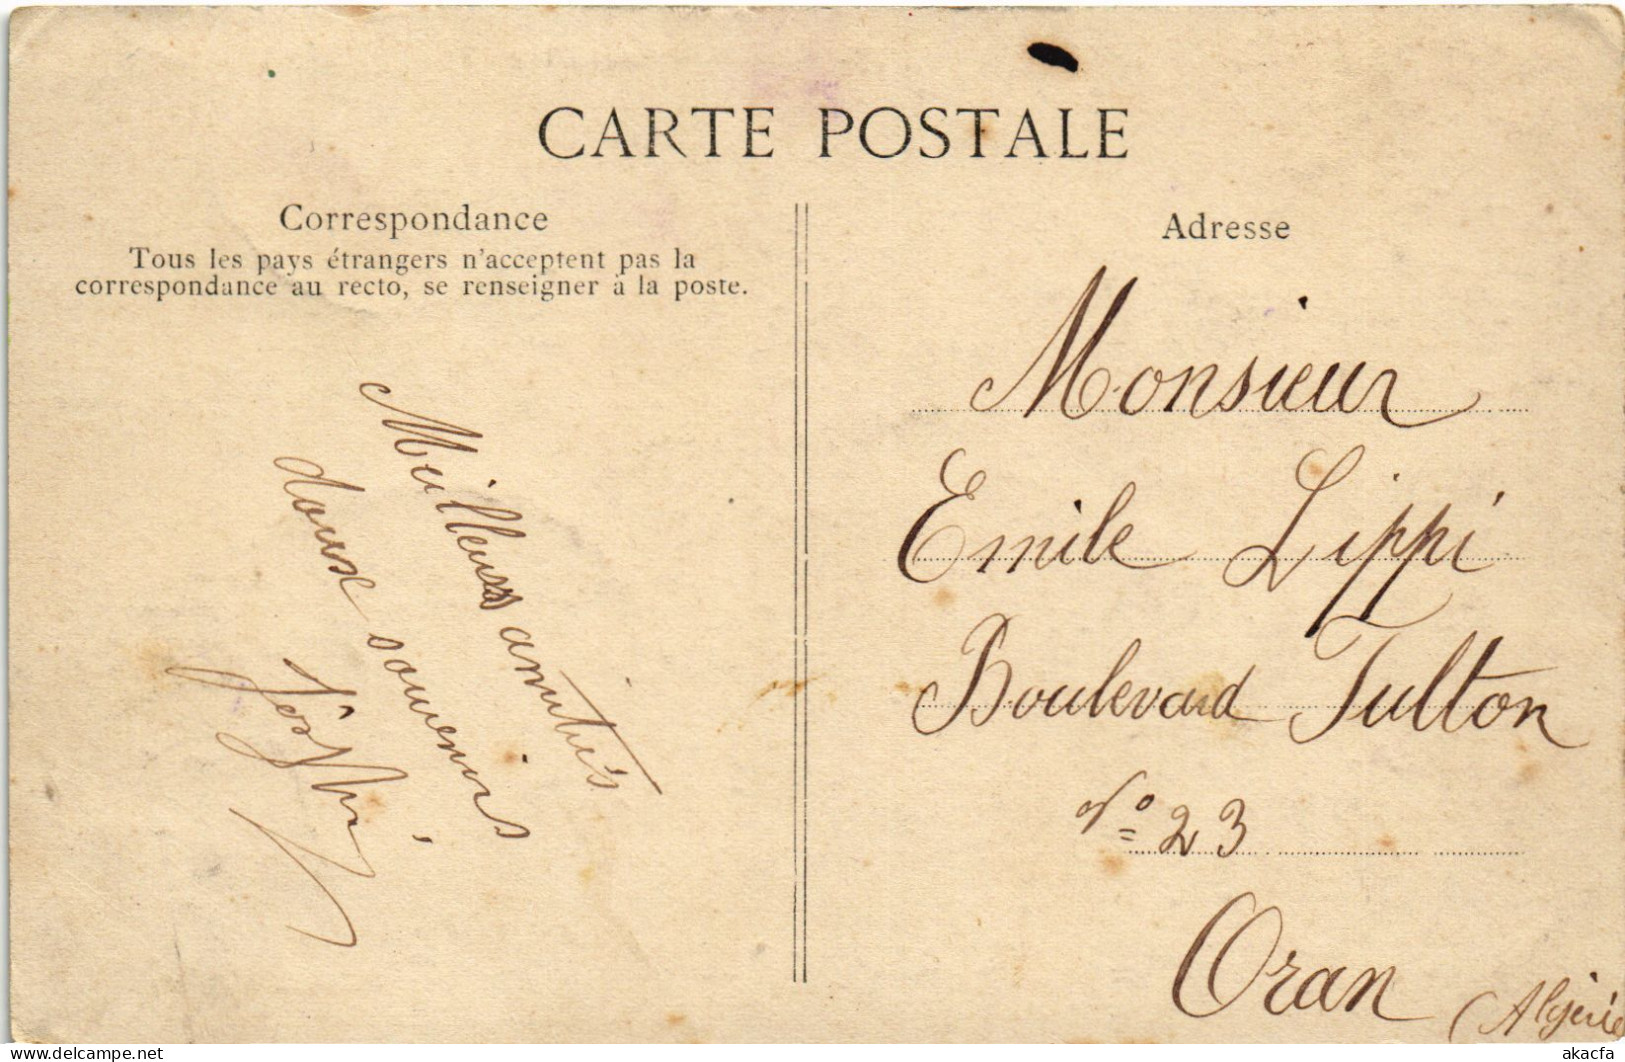 CARTE POSTALE
Correspondance
Tous les pays étrangers n'acceptent pas la
correspondance au recto, se renseigner à la poste.
Meilleures amitiés
douxe souvenirs
Adresse
Monsieur
Emile Lippi
Boulevard Fulton
Nº 23
Oran (Algérie
delcampe.net
akacfa